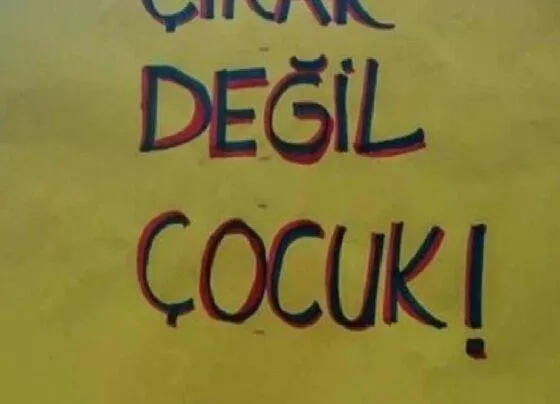 ÇIRAK
DEĞİL
ÇOCUK!